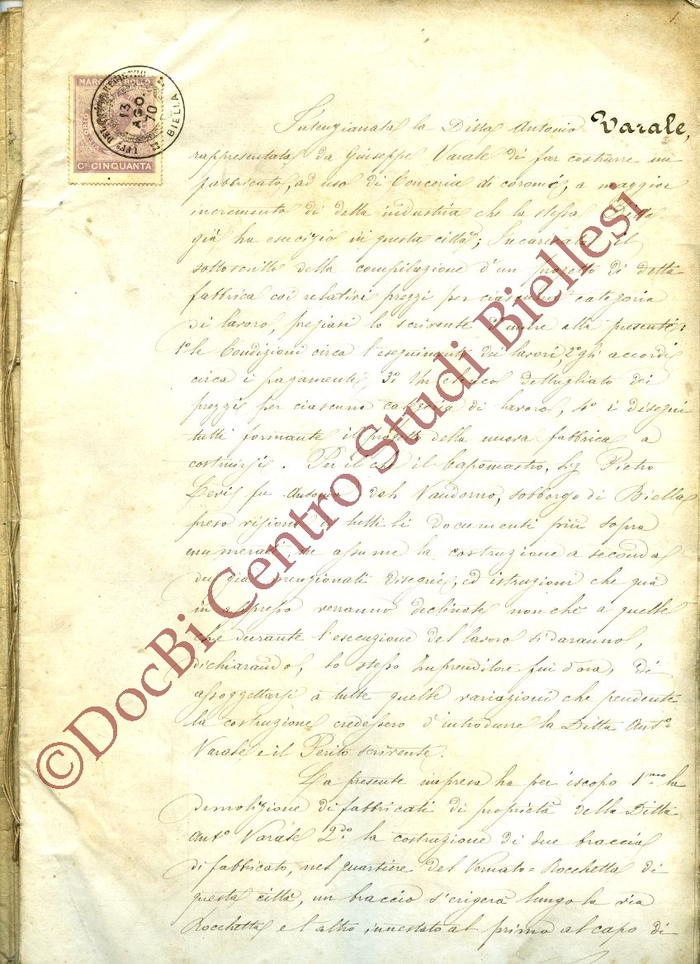 MARCA DA BOLLO
13
AGO.
70
BIELLA
Cmi CINQUANTA
Intenzionata la Ditta Antonio Varale,
rappresentata da Giuseppe Varale di far costrurre un
fabbricato, ad uso di Conceria di corame, a maggior
incremento di detta industria che la stessa Ditta
già ha esercizio in questa città; Incaricato il
sottoscritto della compilazione d'un progetto di detta
fabbrica coi relativi prezzi per ciascuna categoria
di lavoro, pregiasi lo scrivente d'unire alla presente:
1º le Condizioni circa l'eseguimento dei lavori, 2º gli accordi
circa i pagamenti, 3º Un elenco dettagliato dei
prezzi per ciascuna categoria di lavoro, 4º i disegni
tutti formante il progetto della nuova fabbrica a
costruirsi. Per il che il capomastro, Sig Pietro
Levis fu Antonio del Vandorno, sobborgo di Biella
preso visione di tutti li documenti più sopra
enumerati, se assume la costruzione a seconda
dei già menzionati disegni, ed istruzioni che quì
in appresso verranno declinate non chè a quelle
che durante l'esecuzione del lavoro si daranno,
dichiarando, lo stesso Imprenditore fin d'ora, di
assoggettarsi a tutte quelle variazioni che pendente
la costruzione credessero d'introdurre la Ditta Antº
Varale e il Perito scrivente.
La presente impresa ha per iscopo 1mo la
demolizione di fabbricati di proprietà della Ditta
Antº Varale 2do la costruzione di due braccia
di fabbricato, nel quartiere del Vernato-Rocchetta di
questa città, un braccio s'erigerà lungo la via
Rocchetta, e l'altro innestato al primo al capo di
©DocBi Centro Studi Biellesi